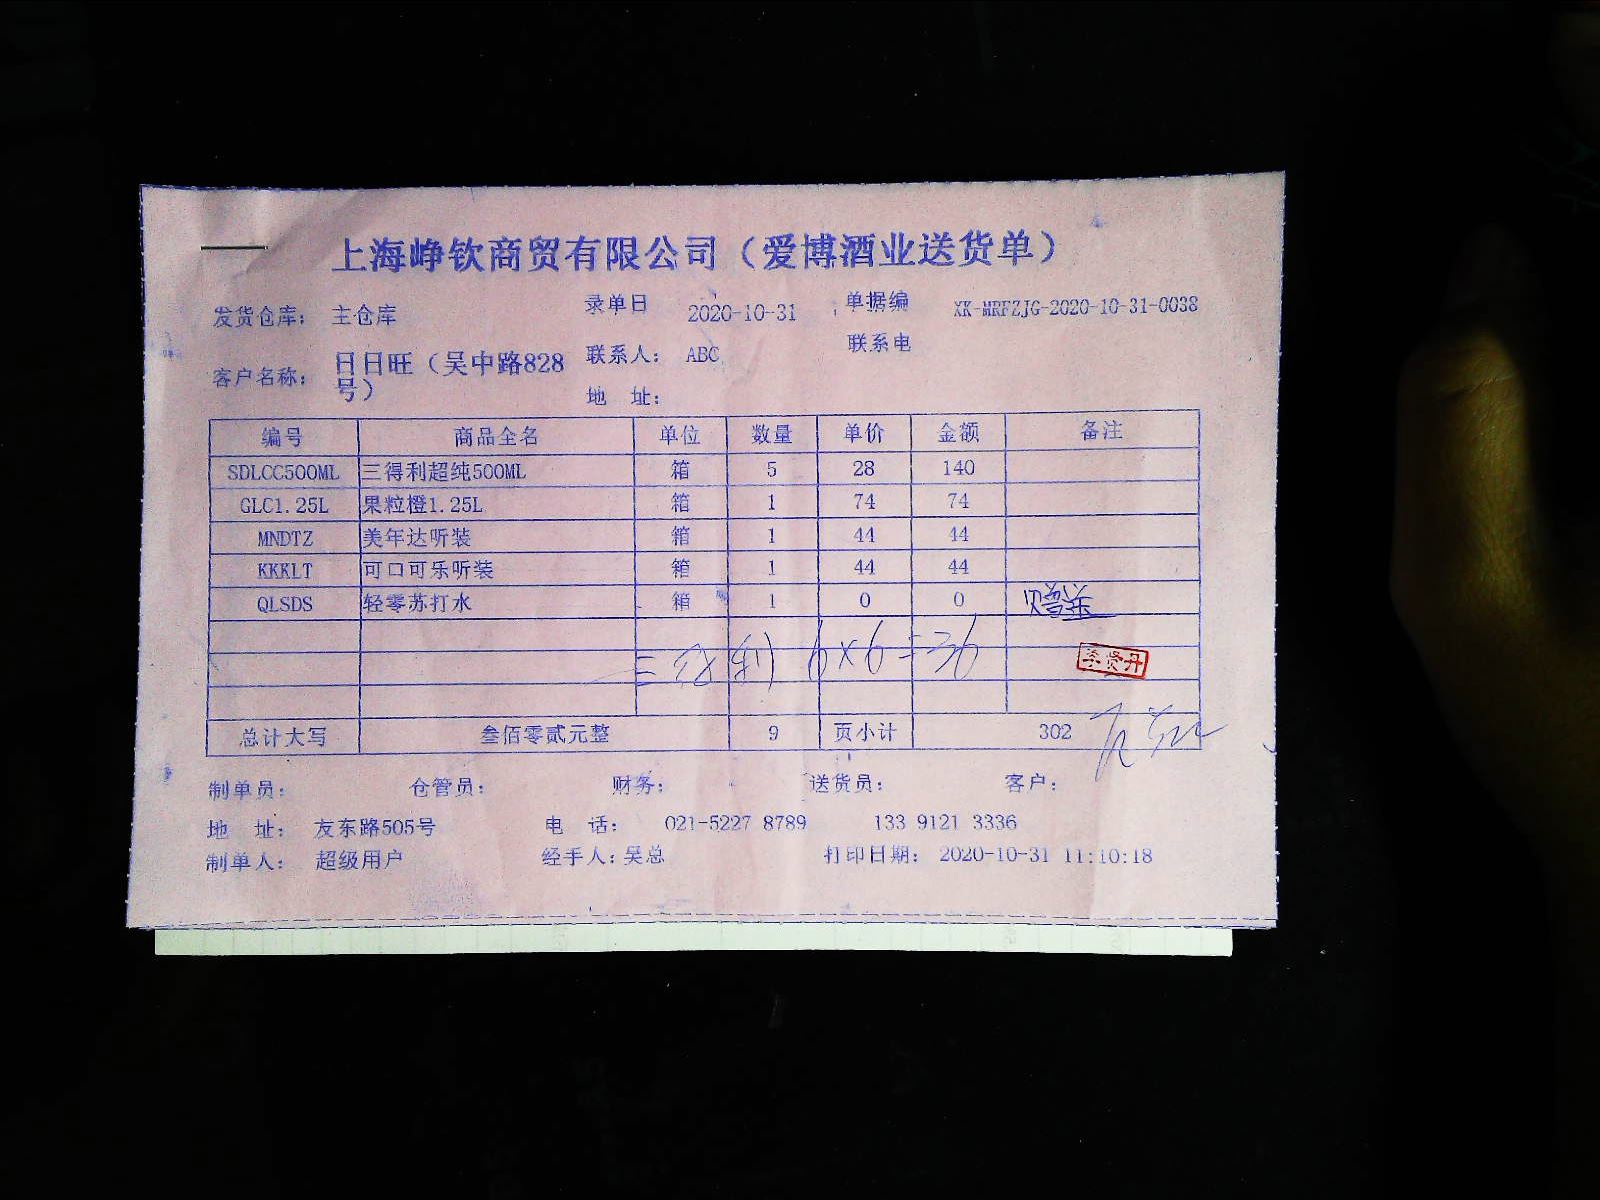 上海峥钦商贸有限公司（爱博酒业送货单）
发货仓库： 主仓库 录单日 2020-10-31 单据编 XK-MRFZJG-2020-10-31-0038
客户名称： 日日旺（吴中路828号） 联系人： ABC 联系电
地 址：
编号 商品全名 单位 数量 单价 金额 备注
SDLCC500ML 三得利超纯500ML 箱 5 28 140
GLC1.25L 果粒橙1.25L 箱 1 74 74
MNDTZ 美年达听装 箱 1 44 44
KKKLT 可口可乐听装 箱 1 44 44
QLSDS 轻零苏打水 箱 1 0 0 赠
6×6=36
李贤丹
总计大写 叁佰零贰元整 9 页小计 302
制单员： 仓管员： 财务： 送货员： 客户：
地 址： 友东路505号 电 话： 021-5227 8789 133 9121 3336
制单人： 超级用户 经手人：吴总 打印日期： 2020-10-31 11:10:18